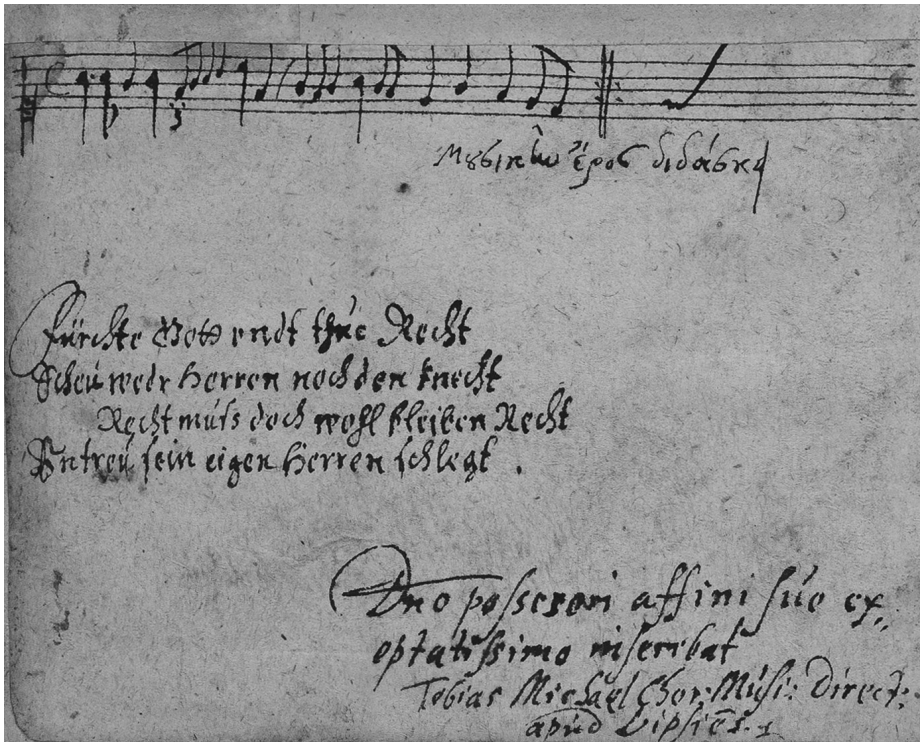 Μȣσικὴν ἔρος διδάσκει
Fürchte Gott vndt thue Recht
Scheü wedr Herren noch den knecht
Recht muſs doch wohl bleiben Recht
Vntreü ſein eigen Herren ſchlegt .
Dno poſseſsori affini ſuo ex,,
optatiſsimo inſcribat
Tobias Michael Chor: Muſi: Direct:
apud Lipſiẽs.